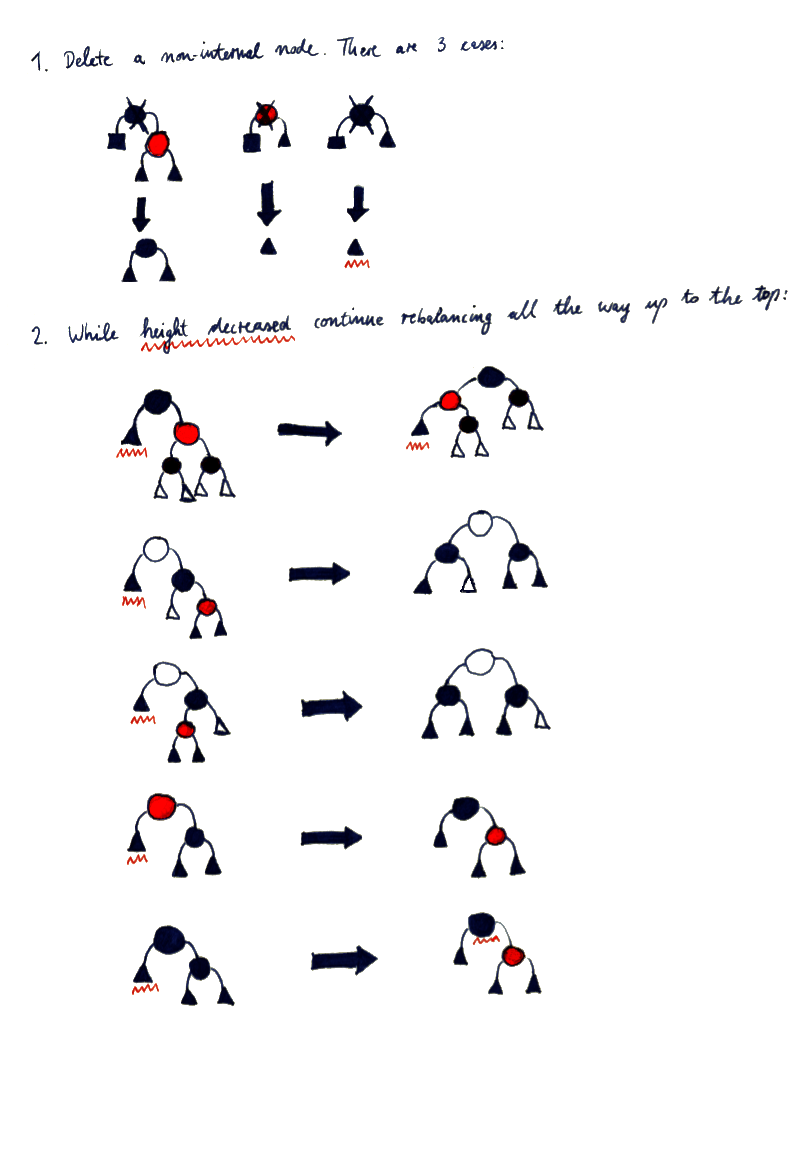 1. Delete a non-internal node. There are 3 cases:
2. While height decreased continue rebalancing all the way up to the top: